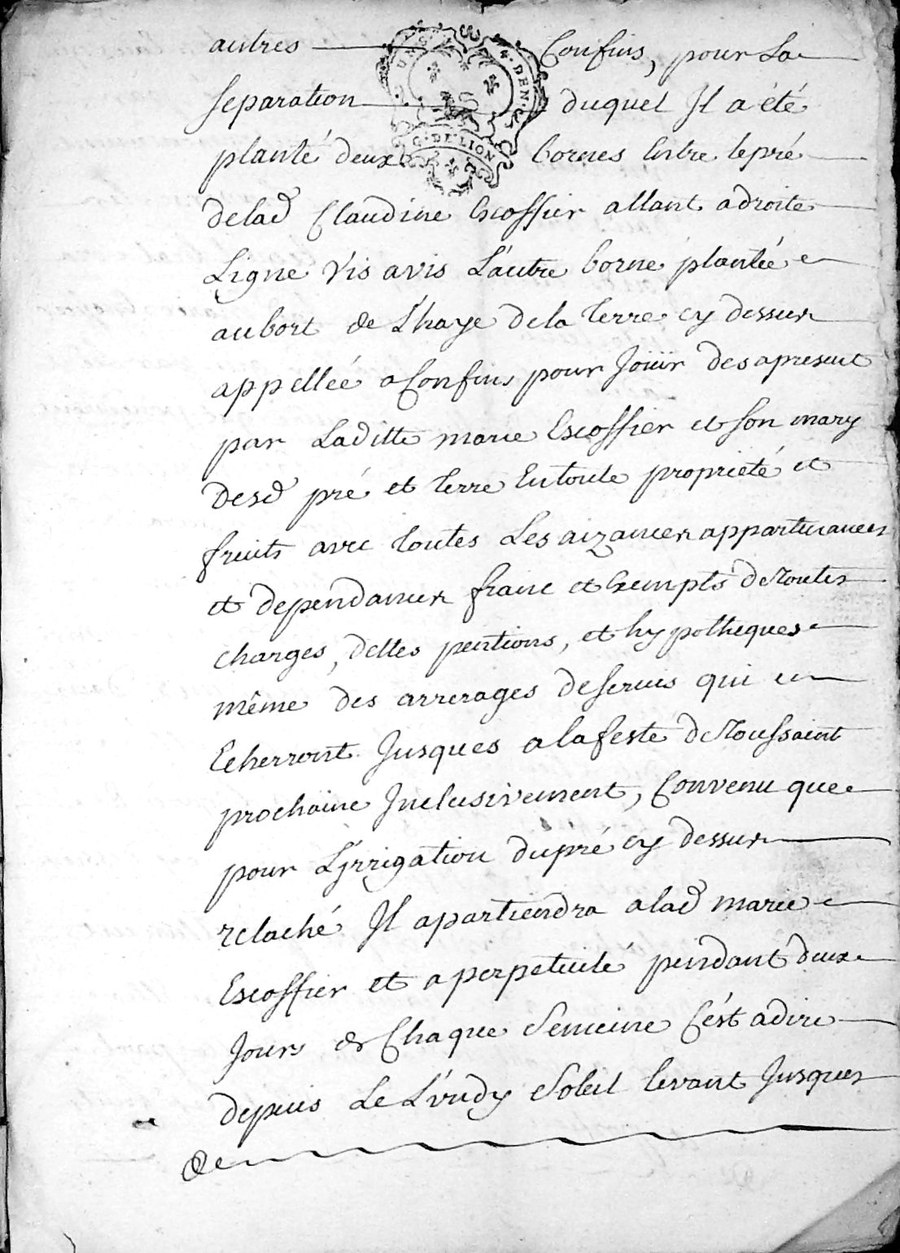 autres Confins, pour La
separation duquel Il a été
planté deux bornes Entre le pré
delad Claudine Escoffier allant adroite
Ligne Vis avis L'autre borne plantée
au bort de L'haye dela Terre cy dessus
appellée a Confins pour Jouir des apresent
par Laditte marie Escoffier et son mary
desd pré et Terre En toute proprieté et
fruits avec toutes Les aizances appartenances
et dependances franc et Exempts de Toutes
charges, dettes pentions, et hypotheques
même des arrerages de servis qui
Echerront Jusques a lafeste de Toussaint
prochaine Inclusivement, Convenu que
pour L'jrrigation du pré cy dessus
relaché Il apartiendra a lad marie
Escoffier et a perpetuité pendant deux
Jours de Chaque Semeine C'est adire
depuis Le Lundy Soleil levant Jusques
4. DEN.
G. DE LION